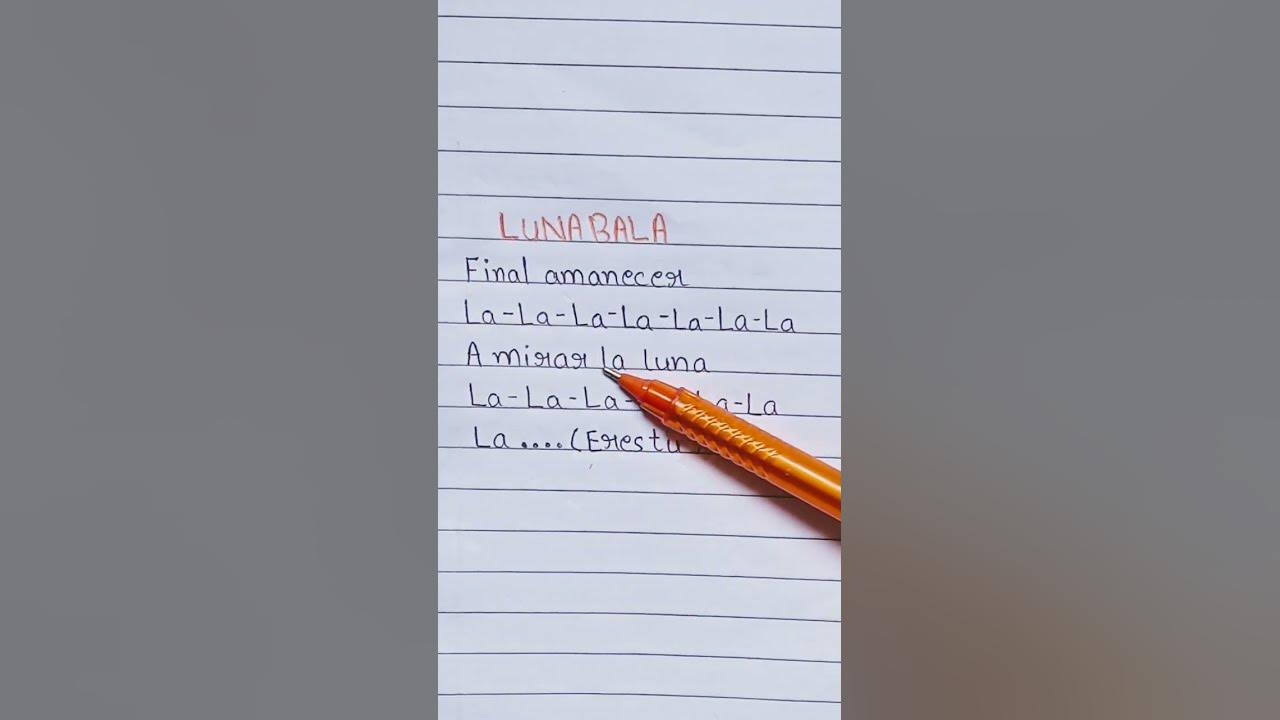 LUNA BALA
Final amanecer
La-La-La-La-La-La-La
A mirar la luna
La-La-La- La-La
La....(Eres tu